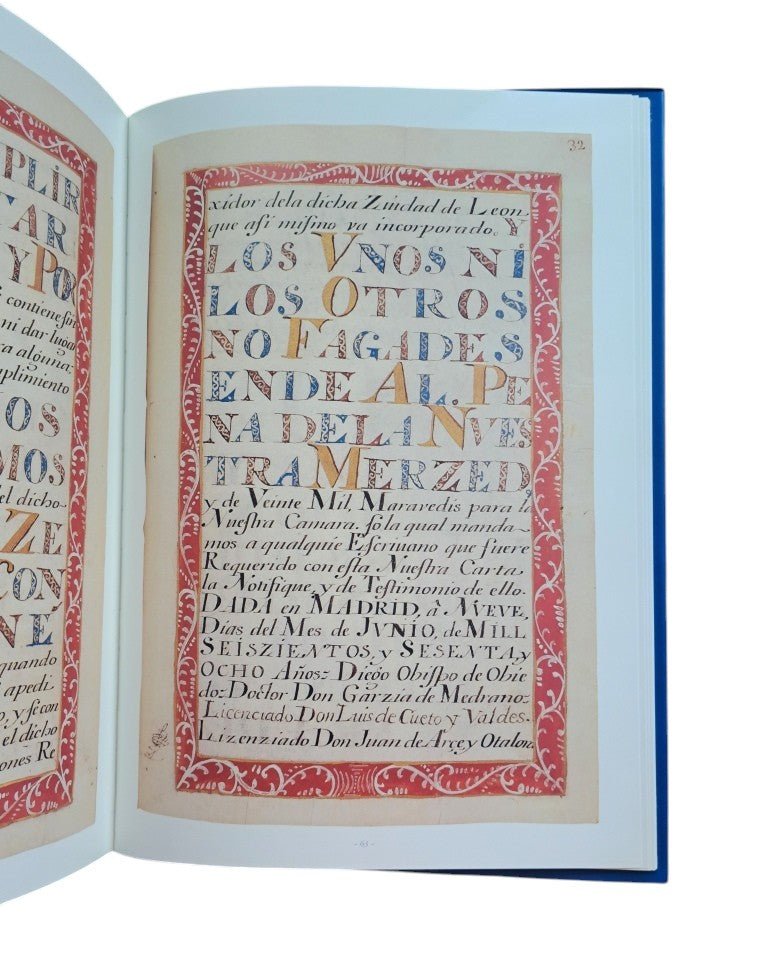 PLIR
TAR
Y PO
contiene sin
ni dar lugar
ra alguna
uplimiento
OS
DIOS
el dicho
ZE
CON
NE
quando
apedi
o, y se con
el dicho
iones Re
32
xidor dela dicha Ziudad de Leon
que assi mismo va incorporado. Y
LOS VNOS NI
LOS OTROS
NO FAGADES
ENDE AL. PE
NA DE LA NVES
TRA MERZED
y de Veinte Mil, Maravedis para la
Nuestra Camara. so la qual manda-
mos a qualquie Escrivano que fuere
Requerido con esta Nuestra Carta
la Notifique, y de Testimonio de ello.
DADA en MADRID, à NVEVE,
Dias del Mes de JVNIO, de MILL
SEISZIENTOS, y SESENTA, y
OCHO Años: Diego Obispo de Obie
do: Doctor Don Garzia de Medrano:
Licenciado Don Luis de Cueto y Valdes.
Lizenziado Don Juan de Arze y Otalora
- 63 -